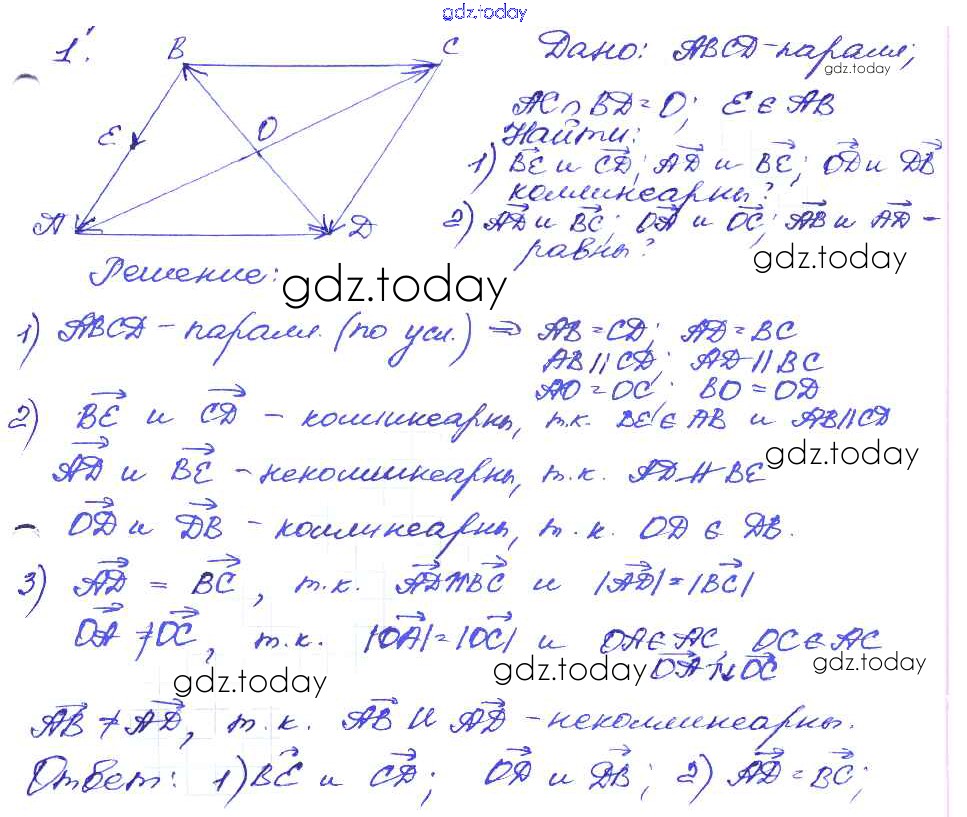 gdz.today
1.
B
C
E
O
A
D
Дано: ABCD-паралл;
gdz.today
AC∩BD=O; E∈AB
Найти:
1) BE⃗ и CD⃗; AD⃗ и BE⃗; OD⃗ и DB⃗
коллинеарны?
2) AD⃗ и BC⃗; OA⃗ и OC⃗; AB⃗ и AD⃗ -
равны?
gdz.today
Решение:
gdz.today
1) ABCD - паралл. (по усл.) ⇒ AB=CD; AD=BC
AB||CD; AD||BC
AO=OC; BO=OD
2) BE⃗ и CD⃗ - коллинеарны, т.к. BE∈AB и AB||CD
gdz.today
AD⃗ и BE⃗ - неколлинеарны, т.к. AD∦BE
OD⃗ и DB⃗ - коллинеарны, т.к. OD∈DB.
3) AD⃗ = BC⃗, т.к. AD⃗↑↑BC⃗ и |AD⃗|=|BC⃗|
OA⃗ ≠ OC⃗, т.к. |OA⃗|=|OC⃗| и OA∈AC, OC∈AC
OA⃗↑↓OC⃗
gdz.today
gdz.today
gdz.today
AB⃗ ≠ AD⃗, т.к. AB⃗ и AD⃗ - неколлинеарны.
Ответ: 1) BE⃗ и CD⃗; OD⃗ и DB⃗; 2) AD⃗=BC⃗;